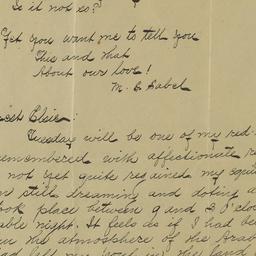 Is it not so?
Yet you want me to tell you
This and that
About our love!
M. E. Sabel
Elsie:
Tuesday will be one of my red
remembered with affectionate
not yet quite regained my
still dreaming and doting
took place between 9 and 2 o'clo
able night. It feels as if I had be
the atmosphere of the Arab
left my soul in the land